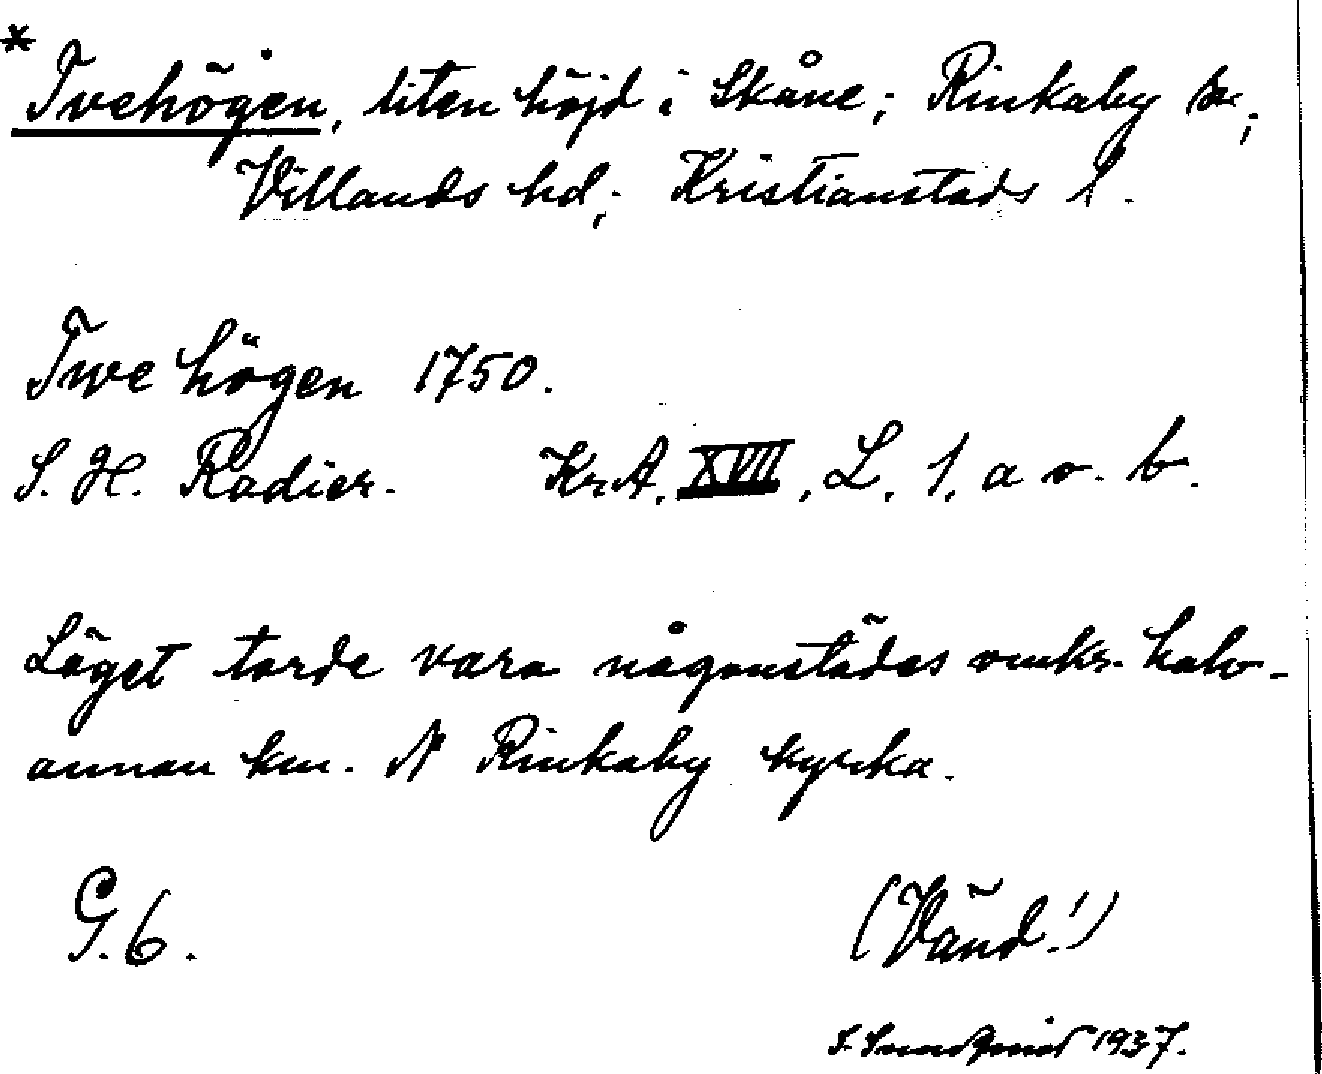 * Tvehögen, liten höjd i Skåne; Rinkaby sn;
Villands hd; Kristianstads l.
Twe högen 1750.
S. H. Radier. Kr.A. XVII, L, 1, a o. b.
Läget torde vara någonstädes omkr. halv-
annan km. N Rinkaby kyrka.
G. 6.
(Vänd!)
1937.